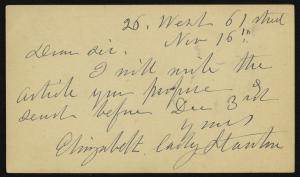 26. West 61 street
Nov 16th
Dear Sir.
I will write the
article you propose
send before Dec 3rd
Yours
Elizabeth Cady Stanton